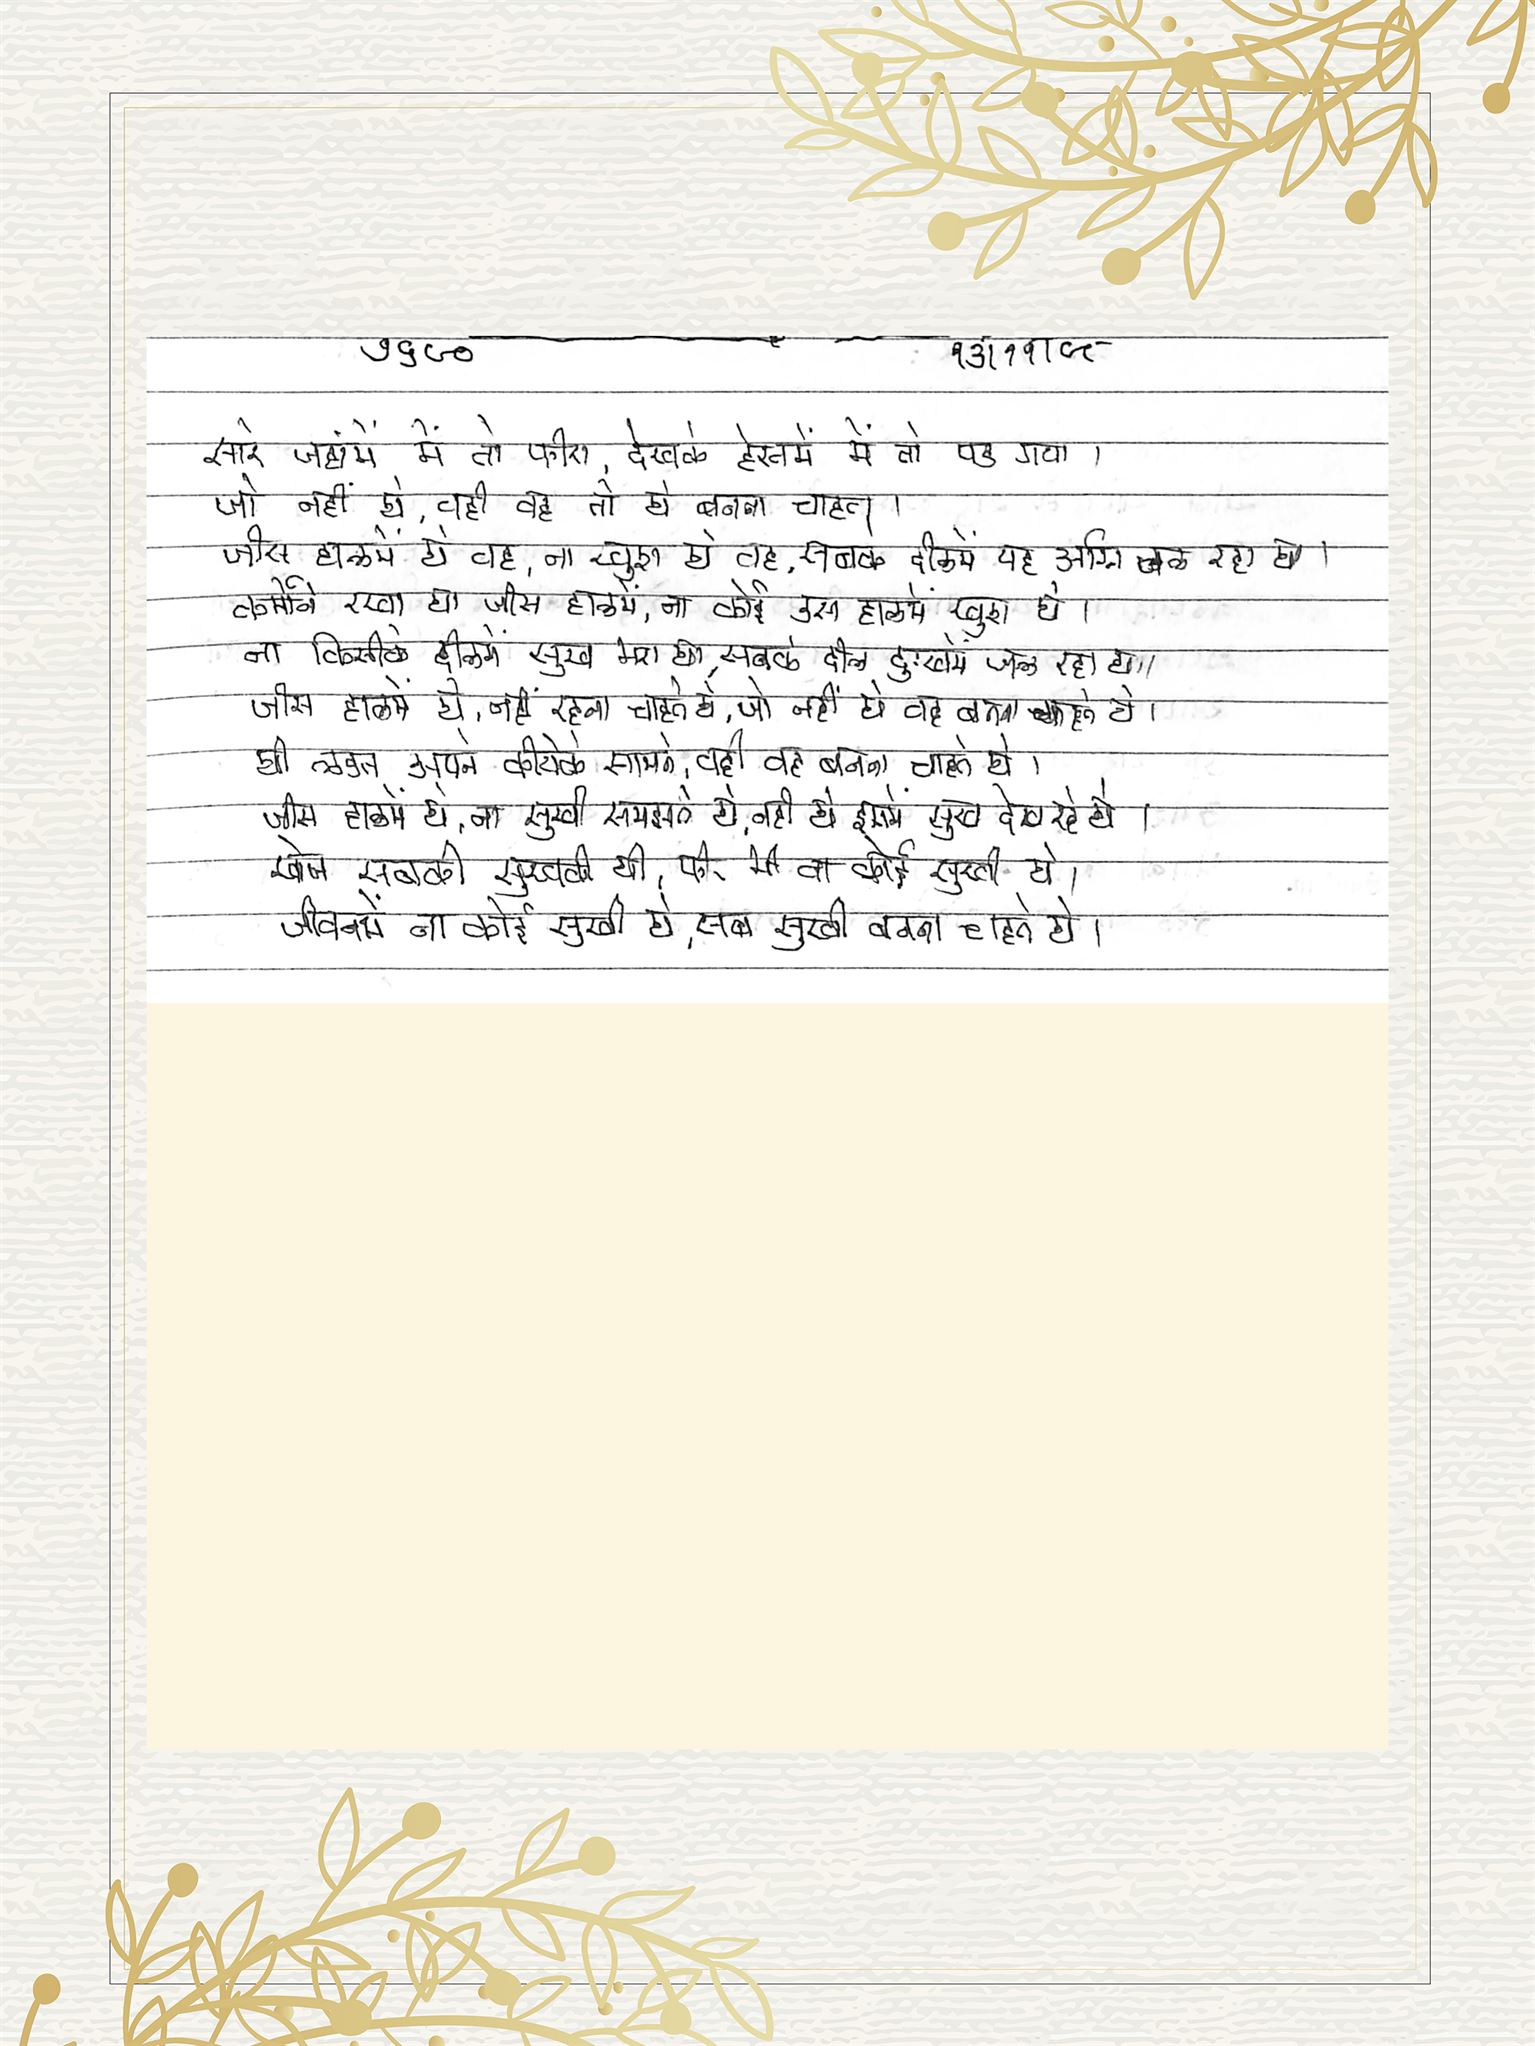 सारे जहांमें में तो फीरा, देखके हेरतमें में तो पड गया ।
जो नहीं थे, वही वह तो थे बनना चाहता ।
जीस हालमें थे वह, ना खुश थे वह, सबके दीलमें यह अग्नि जल रहा था ।
कर्मोने रखा था जीस हालमें, ना कोई उस हालमें खुश थे ।
ना किसीके दीलमें सुख भरा था, सबके दील दुःखमें जल रहा था ।
जीस हालमें थे, नहीं रहना चाहते थे, जो नहीं थे वह बनना चाहते थे ।
थी अपने कीयेके सामने, वही वह बनना चाहते थे ।
जीस हालमें थे, ना सुखी समझते थे, नही थे इसमें सुख देख रहे थे ।
खोज सबकी सुखकी थी, फीर भी ना कोई सुखी थे ।
जीवनमें ना कोई सुखी थे, सब सुखी बनना चाहते थे ।